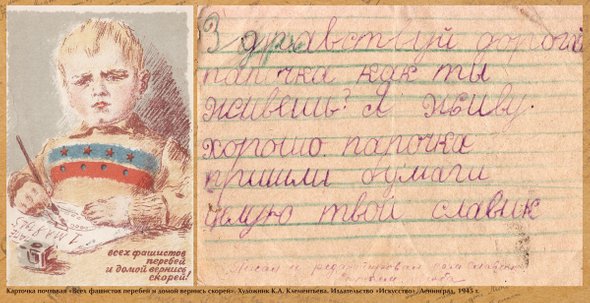 всех фашистов
перебей
и домой вернись
скорей!
Здравствуй дорогой
папочка как ты
живешь? Я живу.
хорошо папочка
пришли бумаги
целую твой славик
писал и редактировал
Карточка почтовая «Всех фашистов перебей и домой вернись скорей». Художник К.А. Клементьева. Издательство «Искусство», Ленинград, 1945 г.